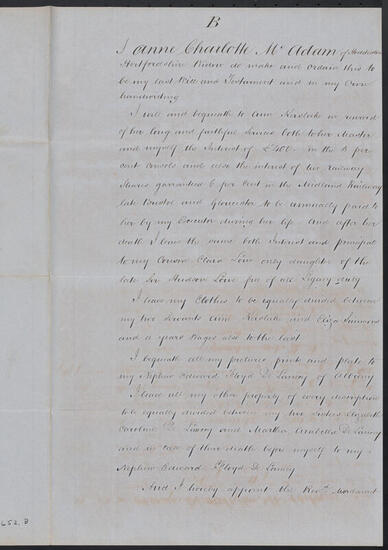 B
I Anne Charlotte Mc Adam of Hoddesdon
Hertfordshire Widow do make and ordain this to
be my last Will and Testament and in my Own
handwriting
I will and bequeath to Ann Kerslake in reward
of her long and faithful Service both to her Master
and myself the Interest of £400. in the 3 per
cent Consols and also the interest of two railway
Shares guaranteed 6 per Cent in the Midland Railway
late Bristol and Gloucester to be annually paid to
her by my Executor during her life And after her
death I leave the same both Interest and principal
to my Cousin Clara Lowe only daughter of the
late Sir Hudson Lowe free of all Legacy duty
I leave my Clothes to be equally divided between
my two Servants Ann Kerslake and Eliza
and a years Wages also to the last
I bequeath all my pictures prints and plate to
my Nephew Edward Floyd De Lancey of Albany
I leave all my other property of every description
to be equally divided between my two Sisters Elizabeth
Caroline De Lancey and Martha Arabella De Lancey
and in case of their death before myself to my
Nephew Edward Floyd De Lancey
And I hereby appoint the Revd. Mordaunt
652. B